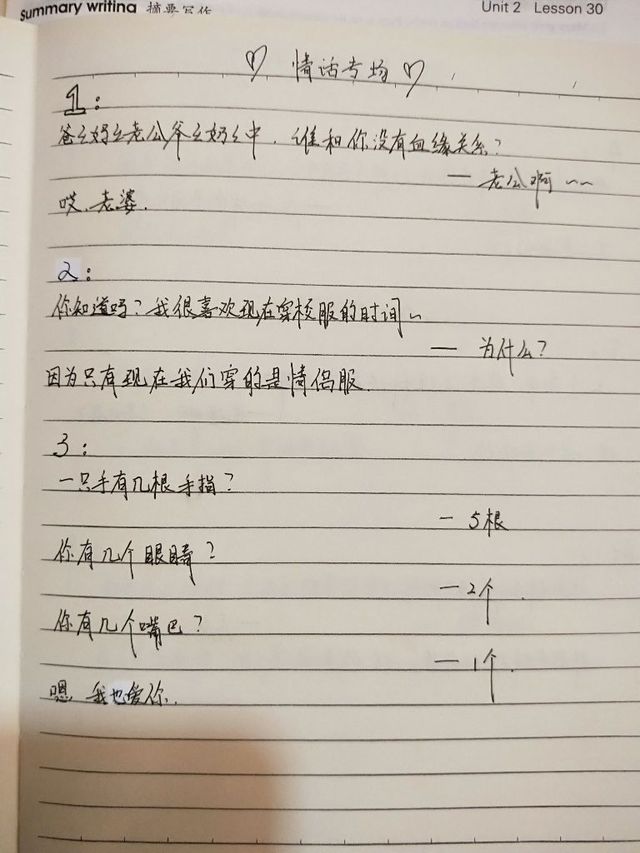 summary writing 摘要写作 Unit 2 Lesson 30
♡ 情话专场 ♡
1:
爸々妈々老公爷々奶々中,谁和你没有血缘关系?
— 老公啊~~
哎,老婆.
2:
你知道吗?我很喜欢现在穿校服的时间~
— 为什么?
因为只有现在我们穿的是情侣服.
3:
一只手有几根手指?
— 5根
你有几个眼睛?
— 2个.
你有几个嘴巴?
— 1个.
嗯,我也爱你.